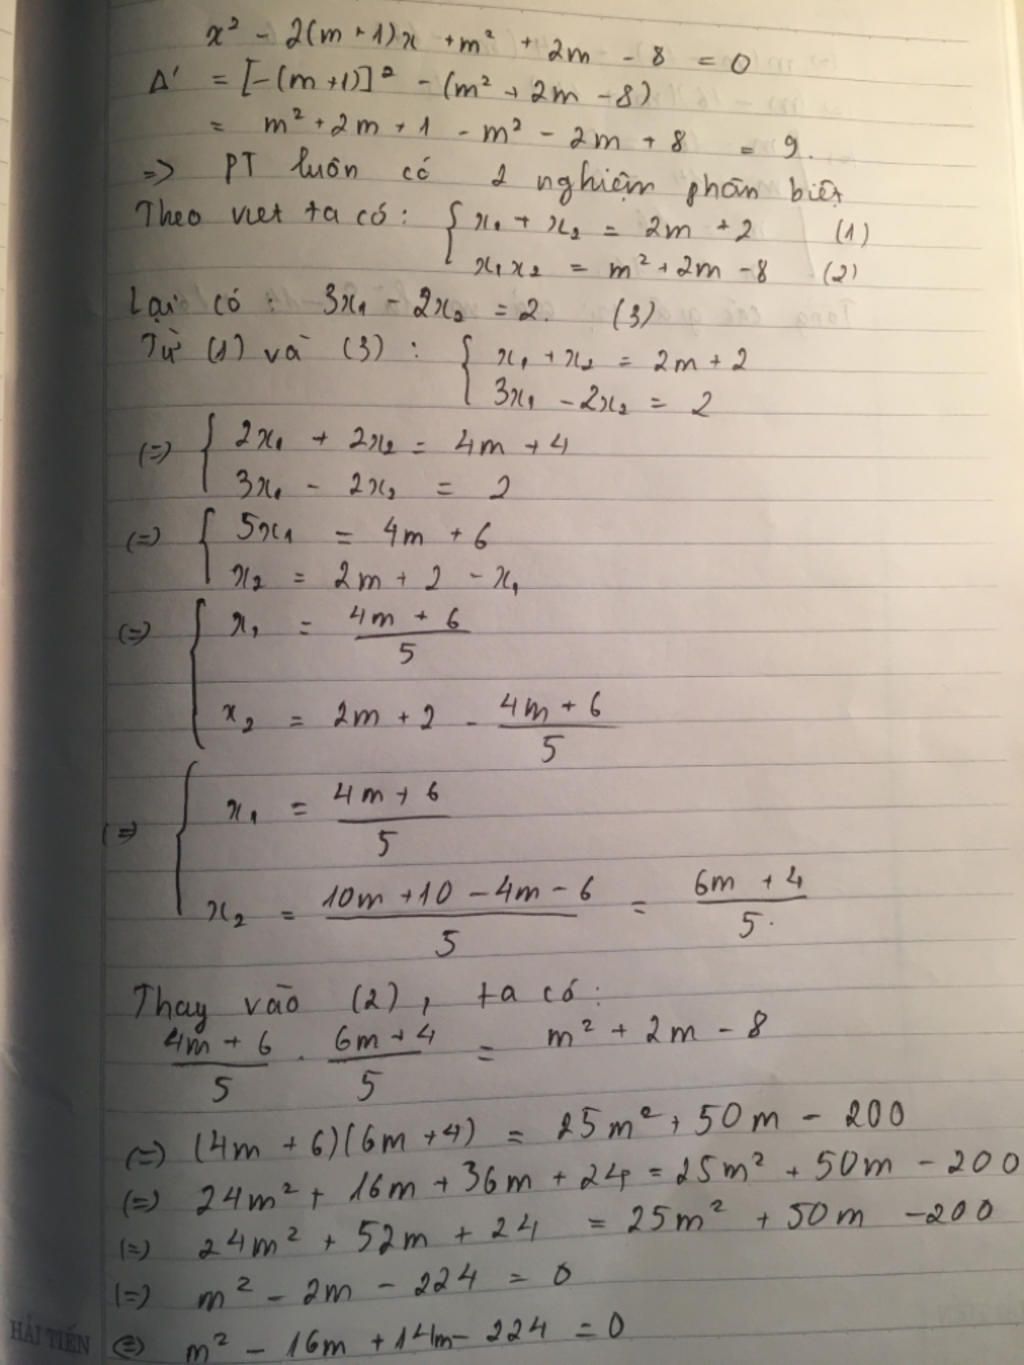 x² - 2(m + 1)x + m² + 2m - 8 = 0
Δ' = [-(m + 1)]² - (m² + 2m - 8)
= m² + 2m + 1 - m² - 2m + 8 = 9.
=> PT luôn có 2 nghiệm phân biệt
Theo viet ta có: { x₁ + x₂ = 2m + 2 (1)
x₁x₂ = m² + 2m - 8 (2)
Lại có : 3x₁ - 2x₂ = 2. (3)
Từ (1) và (3) : { x₁ + x₂ = 2m + 2
3x₁ - 2x₂ = 2
(=) { 2x₁ + 2x₂ = 4m + 4
3x₁ - 2x₂ = 2
(=) { 5x₁ = 4m + 6
x₂ = 2m + 2 - x₁
(=) { x₁ = (4m + 6)/5
x₂ = 2m + 2 - (4m + 6)/5
(=) { x₁ = (4m + 6)/5
x₂ = (10m + 10 - 4m - 6)/5 = (6m + 4)/5.
Thay vào (2), ta có:
(4m + 6)/5 . (6m + 4)/5 = m² + 2m - 8
(=) (4m + 6)(6m + 4) = 25m² + 50m - 200
(=) 24m² + 16m + 36m + 24 = 25m² + 50m - 200
(=) 24m² + 52m + 24 = 25m² + 50m - 200
(=) m² - 2m - 224 = 0
(=) m² - 16m + 14m - 224 = 0
HẢI TIẾN